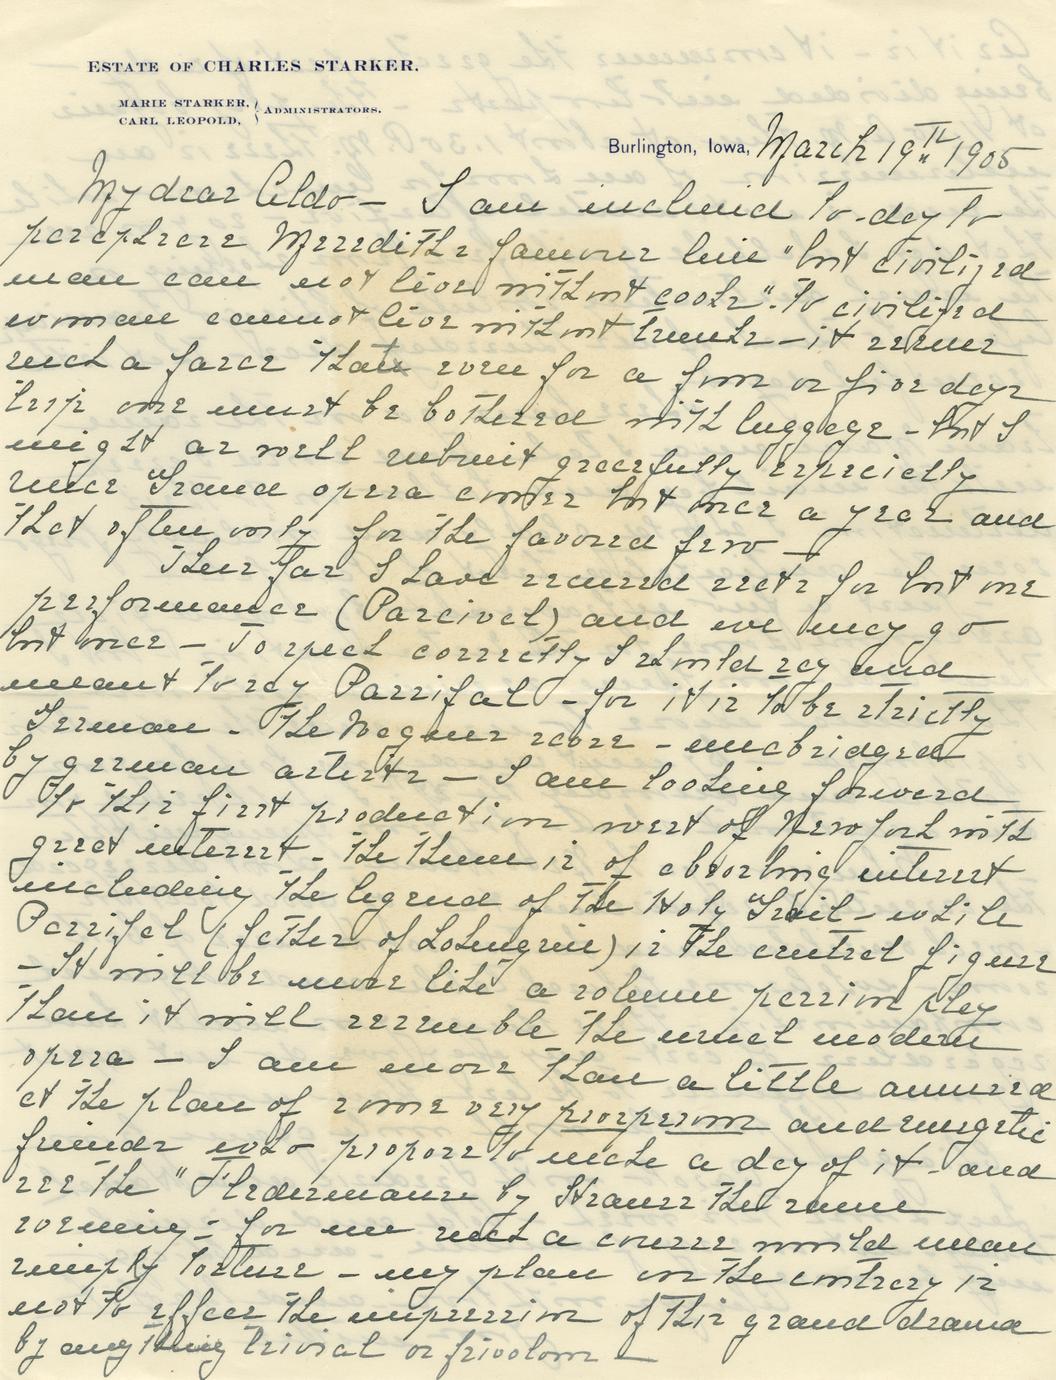 ESTATE OF CHARLES STARKER.
MARIE STARKER,
CARL LEOPOLD, } ADMINISTRATORS.
Burlington, Iowa, March 19th 1905
My dear Aldo — I am inclined to-day to
paraphrase Merediths famous line "but civilized
man can not live without cooks". To civilized
woman cannot live without trunks — it seems
such a farce that even for a four or five days
trip one must be bothered with luggage — but I
might as well submit gracefully especially
since Grand opera comes but once a year and
that often only for the favored few —
Thus far I have secured seats for but one
performance (Parcival) and we may go
but once — To speak correctly I should say and
meant to say Parsifal — for it is to be strictly
German — The Wagner score — unabridged
by german artists — I am looking forward
to this first production west of New York with
great interest — The theme is of absorbing interest
including the legend of the Holy Grail — while
Parsifal (father of Lohengrin) is the central figure
— It will be more like a solemn passion play
than it will resemble the usual modern
opera — I am more than a little amused
at the plan of some very prosperous and energetic
friends who propose to make a day of it — and
see the "Fledermause by Strauss the same
evening — for me such a course would mean
simply torture — my plan on the contrary is
not to efface the impression of this grand drama
by anything trivial or frivolous —